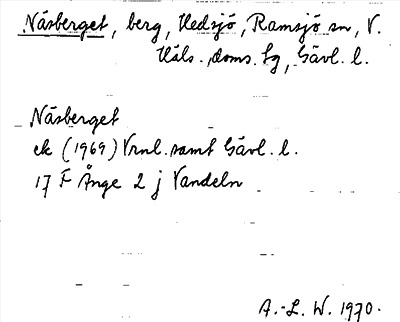 Näsberget, berg, Hedsjö, Ramsjö sn, V.
Häls. doms. lg, Gävl. l.
Näsberget
ek (1969) Vrnl. samt Gävl. l.
17 F Ånge 2 j Vandeln
A.-L. W. 1970.